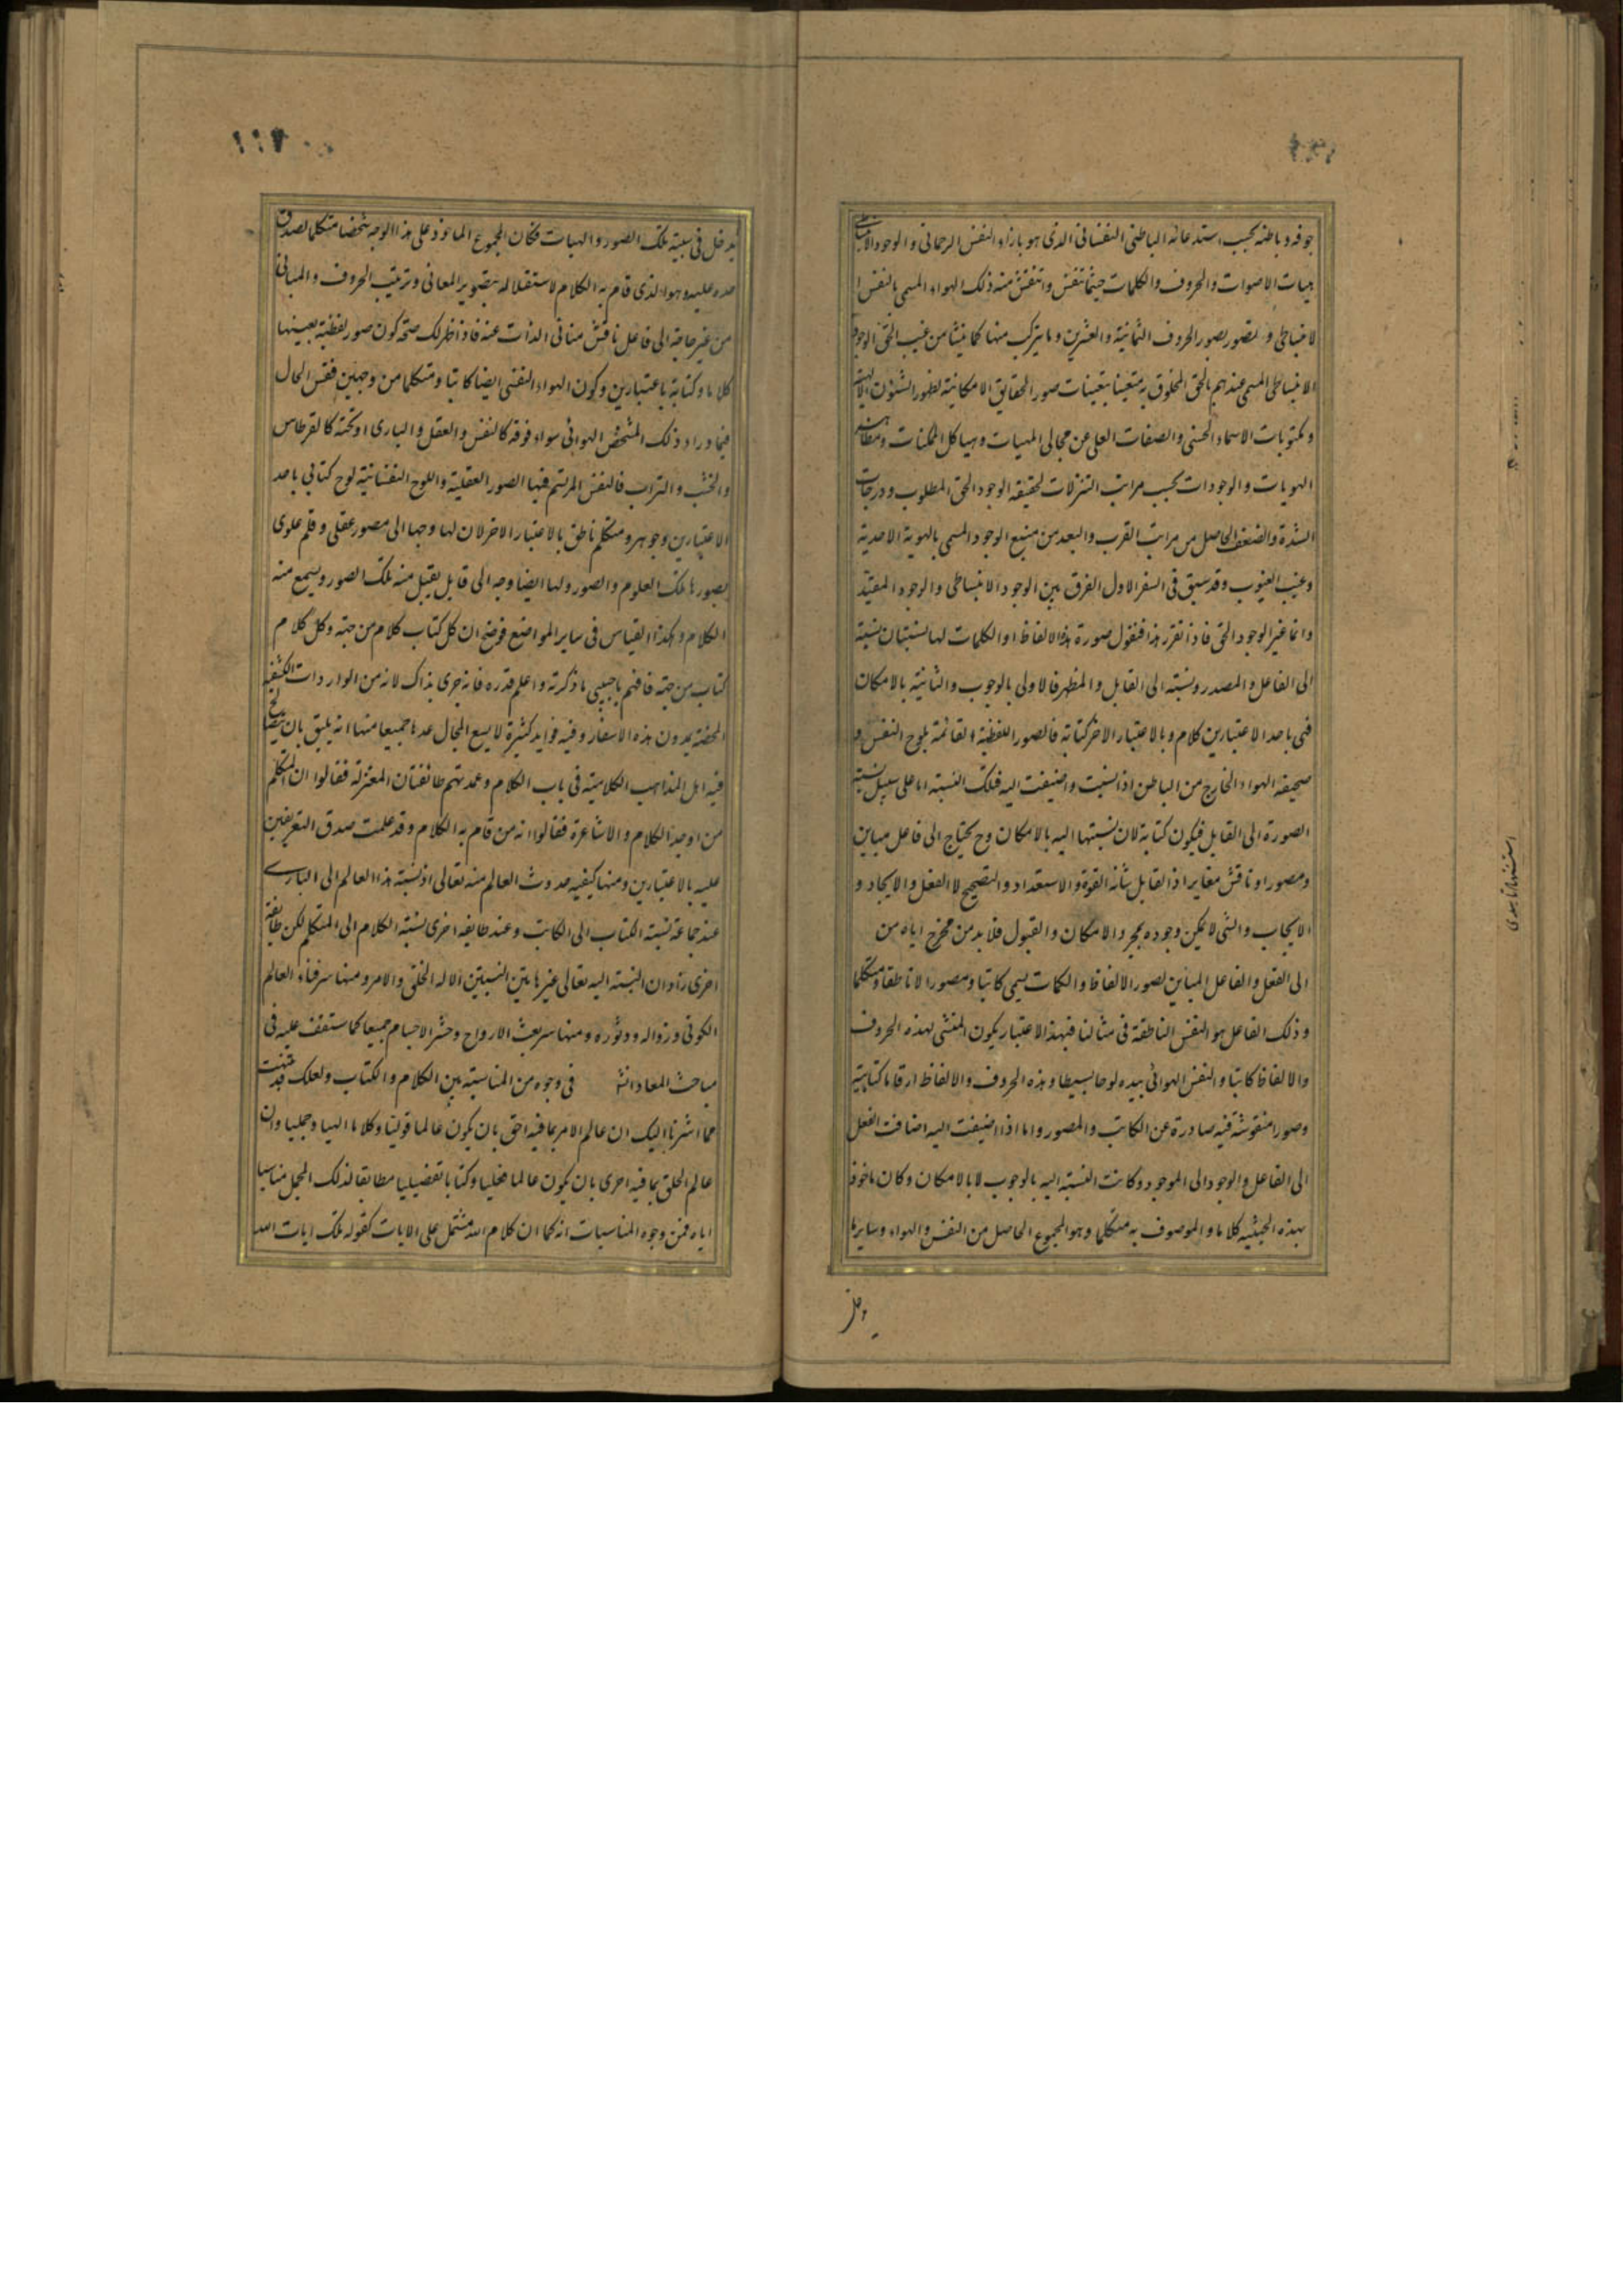 جوفه و باطنه بحسب استدعائه الباطنی النفسانی الذی هو بازاء النفس الرحمانی و الوجود الانبساطی
هیات الاصوات و الحروف و الکلمات حیثما تنفس و انتقش منه ذلک الهواء المسمی بالنفس ا
لانبساطی و تصور بصور الحروف الثمانیة و العشرین و ما یترکب منها کما ینشا من غیب الحق الوجود
الانبساطی المسمی عندهم بالحق المخلوق به متعینا بتعینات صور الحقایق الامکانیة لظهور الشئون الالهیة
و مکنونات الاسماء الحسنی و الصفات العلی عن مجالی المهیات و هیاکل الممکنات و مظاهر
الهویات و الوجودات بحسب مراتب التنزلات لحقیقه الوجود الحق المطلوب و درجات
الشدة و الضعف الحاصل من مراتب القرب و البعد من منبع الوجود المسمی بالهویة الاحدیة
و غیب الغیوب و قد سبق فی السفر الاول الفرق بین الوجود الانبساطی و الوجود المقید
و انما غیر الوجود الحق فاذا تقرر هذا فنقول صورة هذه الالفاظ او الکلمات لها نسبتان نسبة
الی الفاعل و المصدر و نسبته الی القابل و المظهر فالاولی بالوجوب و الثانیة بالامکان
فهی باحد الاعتبارین کلام و بالاعتبار الاخر کتابة فالصور اللفظیة القائمة بلوح النفس و
صحیفه الهواء الخارج من الباطن اذا نسبت و اضیفت الیه فتلک النسبته اما علی سبیل نسبة
الصورة الی القابل فیکون کتابة لان نسبتها الیه بالامکان و ح یحتاج الی فاعل مباین
و مصور او ناقش مغایر اذ القابل شانه القوة و الاستعداد و التصحیح لا الفعل و الایجاد و
الایجاب و الشی لا یمکن وجوده بمجرد الامکان و القبول فلا بد من مخرج ایاه من
الی الفعل و الفاعل المباین لصور الالفاظ و الکمات یسمی کاتبا و مصورا لا ناطقا و متکلما
و ذلک الفاعل هو النفس الناطقة فی مثالنا فبهذا الاعتبار یکون المنشی لهذه الحروف
و الالفاظ کاتبا و النفس الهوائی بیده لوحا بسیطا و هذه الحروف و الالفاظ ارقاما کتابیة
و صورا منقوشة فیه صادرة عن الکاتب و المصور و اما اذا اضیفت الیه اضافت الفعل
الی الفاعل و الوجود الی الموجود و کانت النسبته الیه بالوجوب لا بالامکان و کان ماخوذ
بهذه الحیثیه کلاما و الموصوف به متکلما و هو المجموع الحاصل من النفس و الهواء و سایر ما
یدخل
۱۱۷
یدخل فی سببیة تلک الصور و الهیات فکان المجموع الماخوذ علی هذا الوجه شخصا متکلما لصدق
حده علیه و هو الذی قام به الکلام لاستقلاله بتصویر المعانی و ترتیب الحروف و المبانی
من غیر حاجة الی فاعل ناقش منافی الذات عنه فاذا ظهر لک صحة کون صور لفظیة بعینها
کلاما و کتابة باعتبارین و کون الهواء النفسی ایضا کاتبا و متکلما من وجهین فقس الحال
فیما وراء ذلک المشخص الهوائی سواء فوقه کالنفس و العقل و الباری او تحته کالقرطاس
و الخشب و التراب فالنفس المرتسم فیها الصور العقلیة و اللوح النفسانیة لوح کتابی باحد
الاعتبارین و جوهر و متکلم ناطق بالاعتبار الاخر لان لها وجها الی مصور عقلی و قلم علوی
یصورها تلک العلوم و الصور و لها ایضا وجه الی قابل یقبل منه تلک الصور و یسمع منه
الکلام و هکذا القیاس فی سایر المواضع فوضح ان کل کتاب کلام من جهته و کل کلام
کتاب من جهته فافهم یا حبیبی ما ذکرته و اعلم قدره فانه جری بذاک لانه من الواردات الکشفیة
المختصة بدون هذه الاسفار و فیه فواید کثیرة لا یسع المجال عدها جمیعا منها انه یلیق بان یصالح
فیه اهل المذاهب الکلامیة فی باب الکلام و عمدتهم طائفتان المعتزلة فقالوا ان المتکلم
من اوجد الکلام و الاشاعرة فقالوا انه من قام به الکلام و قد علمت صدق التعریفین
علیه بالاعتبارین و منها کیفیه حدوث العالم منه تعالی اذ نسبة هذا العالم الی الباری
عند جماعة نسبته الکتاب الی الکاتب و عند طایفه اخری نسبته الکلام الی المتکلم لکن طایفة
اخری راوا ان النسبته الیه تعالی غیر هاتین النسبتین الا له الخلق و الامر و منها سر فناء العالم
الکونی و زواله و دثوره و منها سر بعث الارواح و حشر الاجسام جمیعا کما ستقف علیه فی
مباحث المعاد انشا فی وجوه من المناسبته بین الکلام و الکتاب و لعلک قد تنبهت
مما اشرنا الیک ان عالم الامر بما فیه احق بان یکون عالما قولیا و کلاما الهیا و جملیا و ان
عالم الخلق بما فیه احری بان یکون عالما فعلیا و کتابا تفصیلیا مطابقا لذلک المجمل مناسبا
ایاه فمن وجوه المناسبات انه کما ان کلام الله مشتمل علی الایات کقوله تلک ایات الله